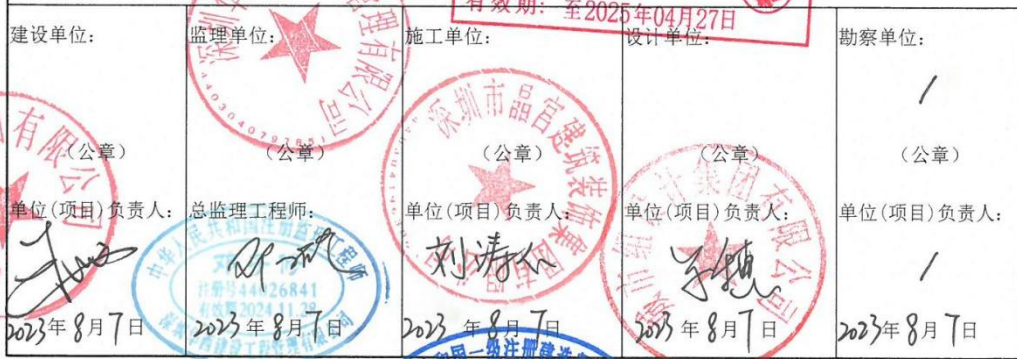 有效期：至2025年04月27日
建设单位： 监理单位： 施工单位： 设计单位： 勘察单位：
/
（公章） （公章） （公章） （公章） （公章）
单位(项目)负责人： 总监理工程师： 单位(项目)负责人： 单位(项目)负责人： 单位(项目)负责人：
/
2023年8月7日 2023年8月7日 2023年8月7日 2023年8月7日 2023年8月7日
有限公司
理有限公司
深圳市晶宫建筑装饰集团有限公司
计集团有限公司
中华人民共和国注册监理工程师
注册号44026841
有效期2024.11.28
国一级注册建造